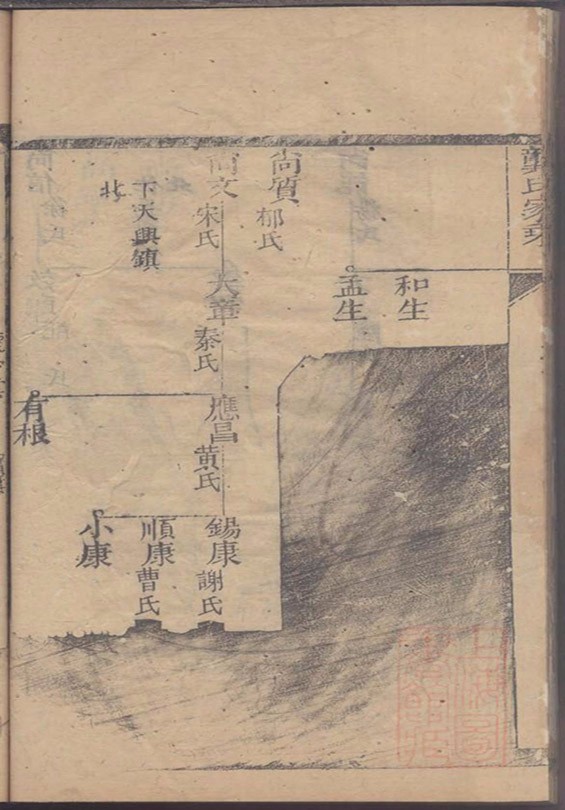 龔氏家乘
和生
孟生
尚質
郁氏
尚文
宋氏
大章
秦氏
應昌
黃氏
錫康
謝氏
下天興鎮
北
順康
曹氏
小康
有根